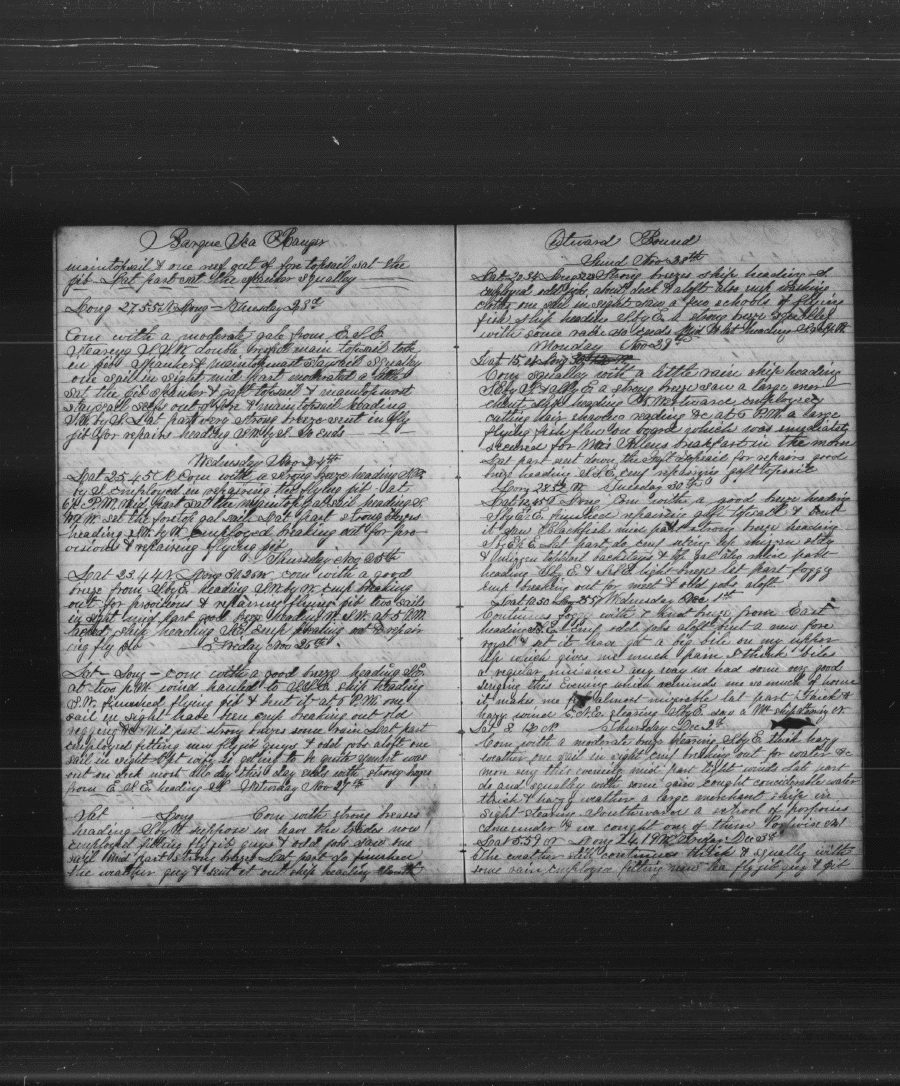 Barque Sea Ranger
maintopsail & one reef out of fore topsail sat the
jib Lat part sat the spanker squally
Long 27.55 N Long — Tuesday 23rd
Com with a moderate gale from E.S.E
Stearing double main topsail took
in jib Spanker & maintopmast staysail Squally
one sail in sight mid part moderated a little
sat the jib spanker & gaft topsail & maintopmost
staysail reefs out of fore & main topsail heading
by S. Lat part very strong breeze went in fly
jib for repairs heading S.W. by S. So ends
Wednesday Nov 24th
Lat 25.45 N Com with a strong breeze heading
by S employed in repairing the flying jib Sat
6 P.M. mid part sat the main top gal sail heading S.
sat the foretop gal sail Lat part strong breezes
heading S.W. by W. employed breaking out for pro
visions & repairing flying jib
Thursday Nov 25th
Lat 23.44 N Long com with a good
breze from S by E heading W.N by W. emp breaking
out for provisions & repairing flying jib two sails
in sight mid part good breze heading W.S.W. at 5 P.M.
ship heading emp breaking out & repair
ing fly jib Friday Nov 26th
Lat — Long — com with a good breze heading
at two P.M. wind hauled to S.S.E. ship heading
S.W. finished flying jib & bent it at 6 P.M. one
sail in sight have been emp breaking out old
rigging &c Mid part strong brezes some rain Lat part
employed fitting new flyjib guys & odd jobs aloft one
sail in sight Capt wife is geting to be quite smart was
out on deck most the day this day ends with strong brezes
from E S.E. heading S.W. Saturday Nov 27th
Lat Long Com with strong breases
heading S by W suppose we have the trades now
employed fitting fly jib guys & odd jobs saw one
sail mid part strong brezes Lat part do finished
the weather guy & sent it out ship heading South
Outward Bound
Sund Nov 28th
Lat 20.34 Long Strong brezes ship heading S
employed odd jobs about deck & aloft also emp washing
clothes one sail in sight saw a few schools of flying
fish ship heading S by E a strong breze & squalley
with some rain so ends
Monday Nov 29th
Lat 15 Long
Com squally with a little rain ship heading
S by E a strong breze saw a large mer
chant ship heading N.W. employed
cutting hair shaveing reading &c at 6 P.M. a large
flying fish flew on board which was imediately
secured for Mrs Allens breakfast in the morn
Lat part sent down the Gaft topsail for repairs good
breze heading S.S.E. emp repairing gaft topsail
Long W. Tuesday 30th
Lat Long Com with a good breze heading
S by E. E. finished repairing gaft topsail & bent
it saw Blackfish mid part strong breze heading
S by E. E. Lat part do emp seting up mizzen stay
& Mizzen topmast backstays & top gal stay mid part
heading S by E & S.S.E. light breze lat part foggy
emp breaking out for meat & odd jobs aloft
Lat 10.50 Long 25.57 Wednesday Dec 1st
Continues fogy with a stiad breze from East
heading S.S.E. emp odd jobs aloft bent a new fore
royal & sat it have got a big bile on my upper
lip which gives me much pain I think biles
a regular nuisance any way we had some very good
singing this Evening which reminds me so much of home
it makes me feel almost misrable lat part thick &
hazy wind E.N.E. stearing S by E. saw a Mt ship steering N.
Lat 8. 12 N. Thursday Dec 2d
Com with a moderate breze stearing S by E thick hazy
weather one sail in sight emp breaking out for water &c
more sing this evening mid part light winds lat part
do and squally with some rain caught considerable water
thick & hazy weather a large merchant ship in
sight stearing Southward a school of porpoises
came under & we caught one of them
Lat 5.59 N Long 24.19 W. Friday Dec 3d
The weather still continues thick & squally with
some rain employed fitting new sta fly jib guy & jib